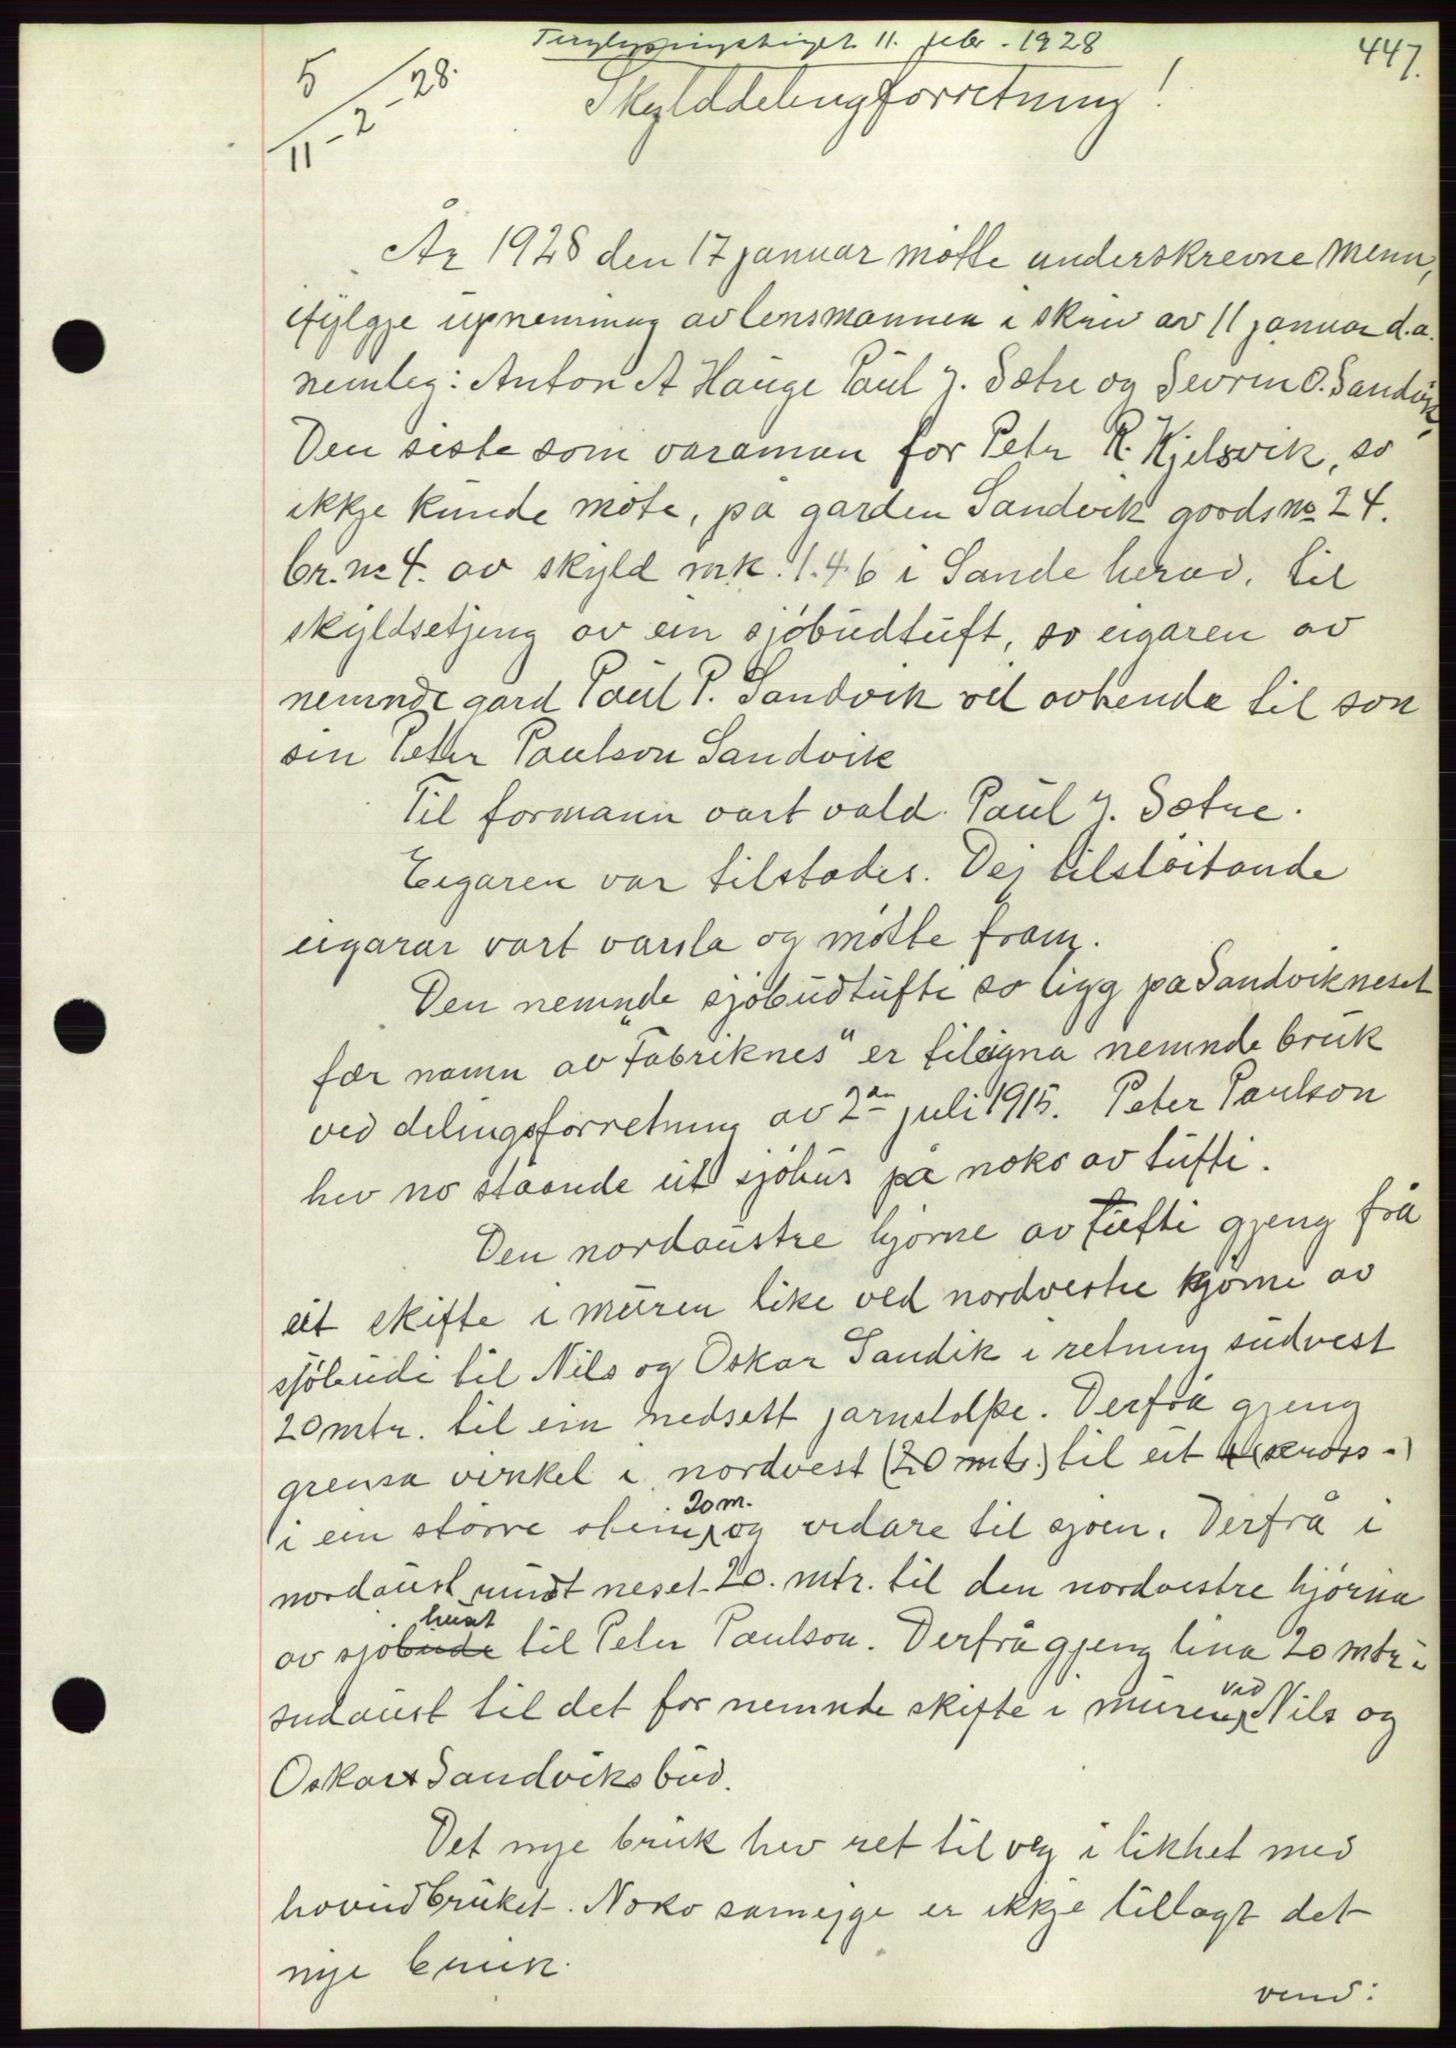 Tinglysningstinget 11. febr. 1928
447.
5
11-2-28.
Skylddelingforretning!
År 1928 den 17 januar møtte underskrevne menn,
ifylgje upnemning av lensmannen i skriv av 11 januar d.a.
nemleg: Anton A Hauge Paul J. Sætre og Sevrin O. Sandvik,
Den siste som varaman for Peter R. Kjelsvik, so
ikkje kunde møte, på garden Sandvik gards no 24.
br. no 4. av skyld mrk. 1.46 i Sande herad, til
skyldsetjeng av ein sjøbudtuft, so eigaren av
nemnde gard Paul P. Sandvik vil avhende til son
sin Peter Paulson Sandvik
Til formann vart vald Paul J. Sætre.
Eigaren var tilstades. Dei tilstøitande
eigarar vart varsla og møtte fram.
Den nemnde sjøbudtufti so ligg på Sandvikneset
fær namn av "Fabriknes" er tileigna nemnde bruk
ved delingsforretning av 2an juli 1915. Peter Paulson
hev noståande eit sjøhus på noko av tufti.
Den nordaustre hjørne av tufti gjeng frå
eit skifte i muren like ved nordvestre hjørne av
sjøbudi til Nils og Oskar Sandik i retning sudvest
20 mtr. til ein nedsett jarnstolpe. Derfrå gjeng
grensa vinkel i nordvest (20 mtr.) til eit x (kross-)
i ein større stein, 20 m. og vidare til sjøen. Derfrå i
nordaust rundt neset 20. mtr. til den nordvestre hjørna
av sjøbude huset til Peter Paulson. Derfrå gjeng lina 20 mtr i
sudaust til det for nemnde skifte i muren ved Nils og
Oskars Sandviks bud.
Det nye bruk hev ret til veg i likhet med
hovudbruket. Noko sameige er ikkje tillagt det
nye bruk.
vend: